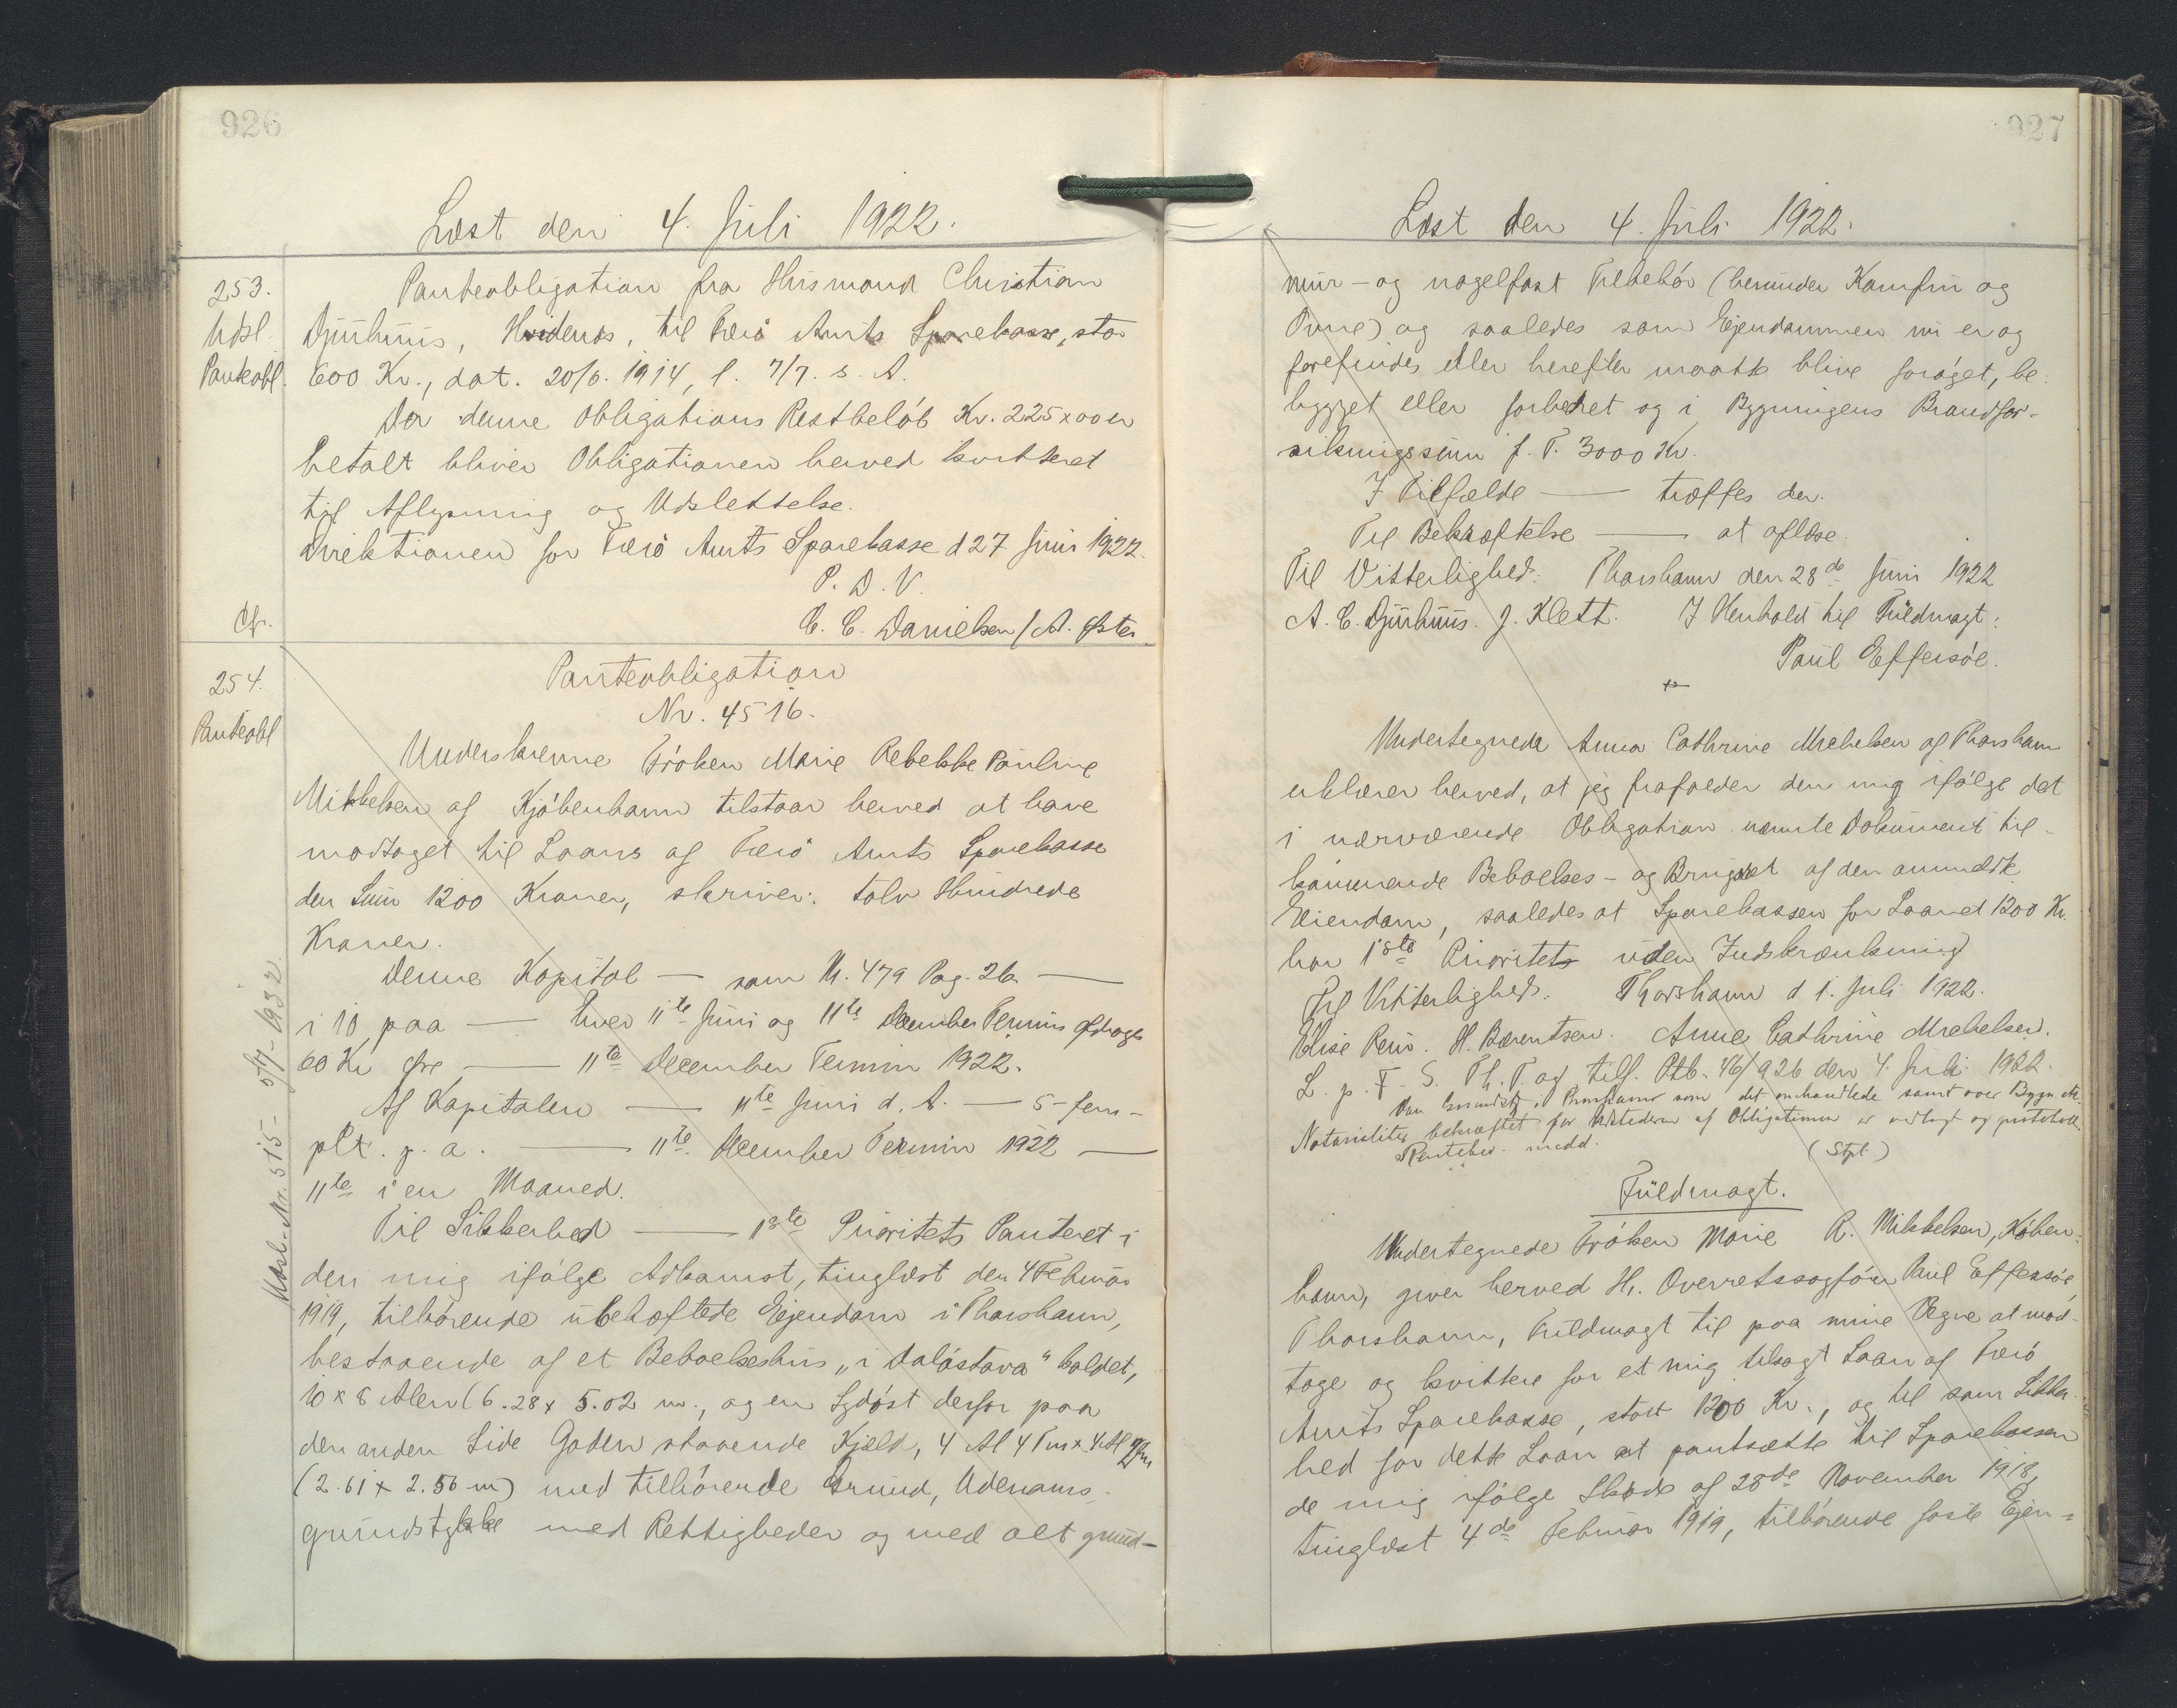 926
Læst den 4. Juli 1922.
253.
Udsl.
Panteobl.
Panteobligation fra Husmand Christian
Djurhuus, Hvidenæs, til Færø Amts Sparekasse, stor
600 Kr., dat. 20/6. 1914, l. 7/7. s. A.
Da denne Obligations Restbeløb Kr. 225 x 00 er
betalt bliver Obligationen herved kvitteret
til Aflysning og Udslettelse.
Direktionen for Færø Amts Sparekasse d 27 Juni 1922.
P. D. V.
C. C. Danielsen / A.
Cfr.
254.
Panteobl
Panteobligation
Nr. 4516.
Underskrevne Frøken Marie Rebekke Pauline
Mikkelsen af Kjøbenhavn tilstaar herved at have
modtaget til Laans af Færø Amts Sparekasse
den Sum 1200 Kroner, skriver: tolv Hundrede
Kroner.
Denne Kapital — som N. 479 Pag. 26 —
i 10 paa — hver 11te Juni og 11te December Termin afdrages
60 Kr — 11te December Termin 1922.
Af Kapitalen — 11te Juni d. A. — 5 - fem -
pCt. p. a. — 11te December Termin 1922 —
11te i en Maaned.
Til Sikkerhed — 1ste Prioritets Panteret i
den mig ifølge Adkomst, tinglæst den 4 Februar
1919, tilhørende ubehæftede Ejendom i Thorshavn,
bestaaende af et Beboelseshus "i Dalástova" kaldet,
10 x 8 Alen (6.28 x 5.02 m., og en Sydøst derfor paa
den anden Side Gaden staaende Kjæld, 4 Al 4 Tm x 4 Al 2 Tm
(2.61 x 2.56 m) med tilhørende Grund, Udenoms-
grundstykke med Rettigheder og med alt grund-
Udsl. Nr. 515 - 5/7 - 1932.
927
Læst den 4. Juli 1922.
mur- og nagelfast Tilbehør (herunder Komfur og
Ovne) og saaledes som Ejendommen nu er og
forefindes eller herefter maatte blive forøget, be-
bygget eller forbedret og i Bygningens Brandfor-
sikringssum f. T. 3000 Kr.
I Tilfælde — træffes der.
Til Bekræftelse — at aflæse.
Til Vitterlighed: Thorshavn den 28de Juni 1922
A. C. Djurhuus. J. Klett. I Henhold til Fuldmagt:
Paul Effersøe.
Undertegnede Anna Cathrine Michelsen af Thorshavn
erklærer herved, at jeg frafalder den mig ifølge det
i nærværende Obligation nævnte Dokument til-
kommende Beboelses- og Brugsret af den ommeldte
Eiendom, saaledes at Sparekassen for Laanet 1200 Kr.
har 1ste Prioritets uden Indskrænkning
Til Vitterlighed. Thorshavn d 1. Juli 1922.
Elise Rein. H. Bærentsen. Anna Cathrine Michelsen.
L. p. F. S. Th. T og tilf. Ptb. 46/926 den 4. Juli 1922.
Thorshavn som det omhandlede samt over Bygn.
Notarialiter bekræftet for Udstederen af Obligationen er vedlagt og protokoll.
medd. (Stpl.)
Fuldmagt.
Undertegnede Frøken Marie R. Mikkelsen, Køben-
havn, giver herved Hr. Overretssagfører Paul Effersøe,
Thorshavn, Fuldmagt til paa mine Vegne at mod-
tage og kvittere for et mig tilsagt Laan af Færø
Amts Sparekasse, stort 1200 Kr., og til som Sikker-
hed for dette Laan at pantsætte til Sparekassen
de mig ifølge Skøde af 28de November 1918,
tinglæst 4de Februar 1919, tilhørende faste Ejen-